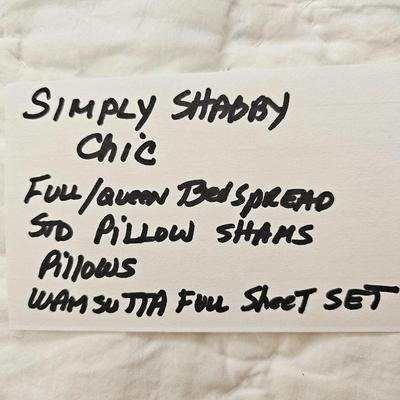 SIMPLY SHABBY
Chic
FULL/QUEEN BEDSPREAD
STD PILLOW SHAMS
Pillows
WAMSUTTA FULL SheeT SET